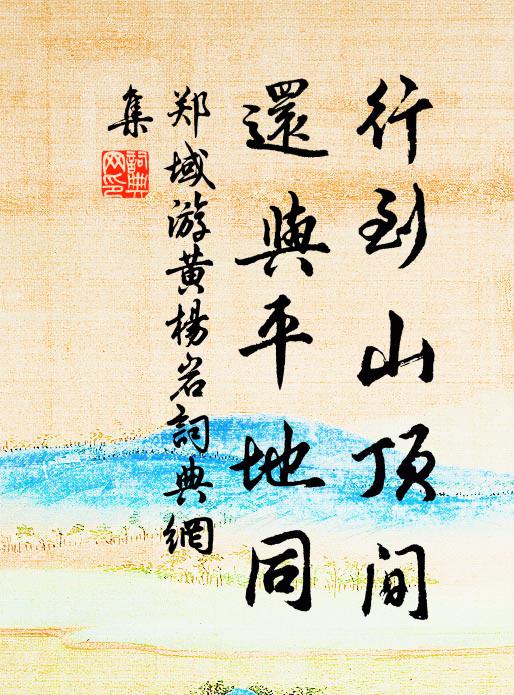 行到山顶间
還與平地同
郑域游黄杨岩詞典網
集
詞典網印